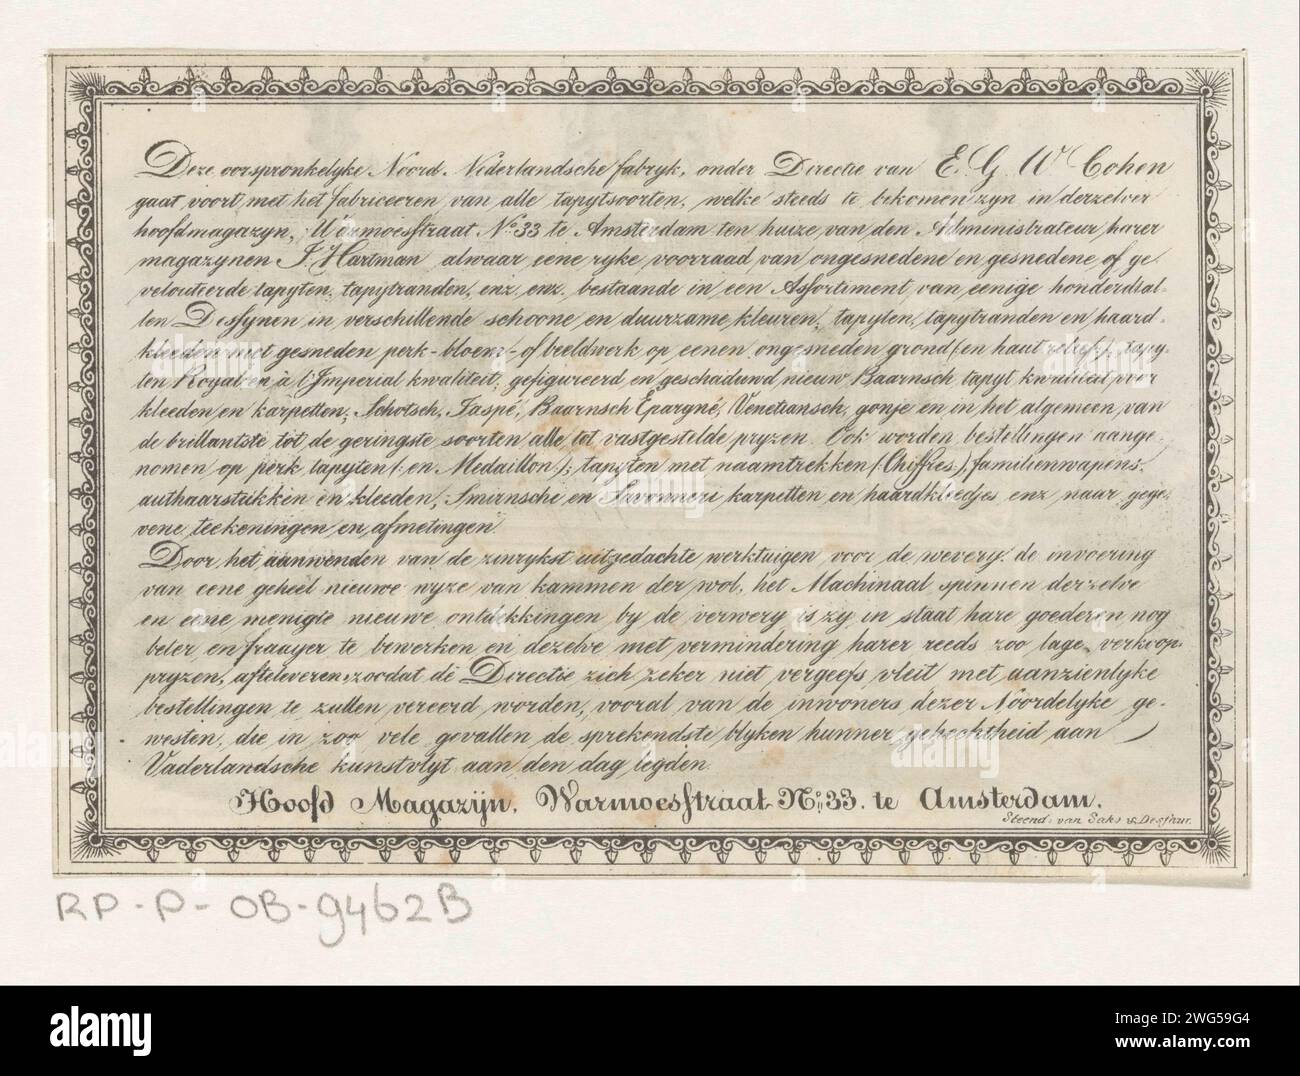 Deze oorspronkelyke Noord Nederlandsche fabryk, onder Directie van E. G. W Cohen
gaat voort met het fabriceeren van alle tapytsoorten, welke steeds te bekomen zyn in derzelver
hoofdmagazyn, Warmoesstraat No 33 te Amsterdam ten huize van den Administrateur harer
magazynen J. Hartman alwaar eene ryke voorraad van ongesnedene en gesnedene of ge.
velouteerde tapyten, tapytranden, enz. enz. bestaande in een Assortiment van eenige honderdtal-
len Dessynen in verschillende schoone en duurzame kleuren, tapyten, tapytranden en haard-
kleeden met gesneden perk-bloem-of beeldwerk op eenen ongesneden grond (en haut relief), tapy-
ten Royal en à l'Imperial kwaliteit, gefigureerd en geschaduwd nieuw Baarnsch tapyt kwaliteit voor
kleeden en karpetten, Schotsch, Jaspé, Baarnsch Épargné, Venetiansch, gonje en in het algemeen van
de brillantste tot de geringste soorten alle tot vastgestelde pryzen. Ook worden bestellingen aange-
nomen op perk tapyten (: en Medaillon:); tapyten met naamtrekken (: Chiffres:), familienwapens,
authaarstukken en kleeden, Smirnsche en Savonneri karpetten en haardkleedjes enz naar gege-
vene teekeningen en afmetingen.
Door het aanwenden van de zinrykst uitgedachte werktuigen voor de wevery. de invoering
van eene geheel nieuwe wyze van kammen der wol, het Machinaal spinnen derzelve
en eene menigte nieuwe ontdekkingen by de verwery is zy in staat hare goederen nog
beter en fraayer te bewerken en dezelve met vermindering harer reeds zoo lage verkoop.
pryzen, afteleveren, zoodat de Directie zich zeker niet vergeefs vleit met aanzienlyke
bestellingen te zullen vereerd worden, vooral van de inwoners dezer Noordelyke ge-
westen, die in zoo vele gevallen de sprekendste blyken hunner gehechtheid aan
Vaderlandsche kunstvlyt aan den dag legden.
Hoofd Magazijn, Warmoesstraat No. 33. te Amsterdam.
Steend: van Saks & Desseur.
RP-P-OB-9462B
alamy
Image ID: 2WG59G4
www.alamy.com